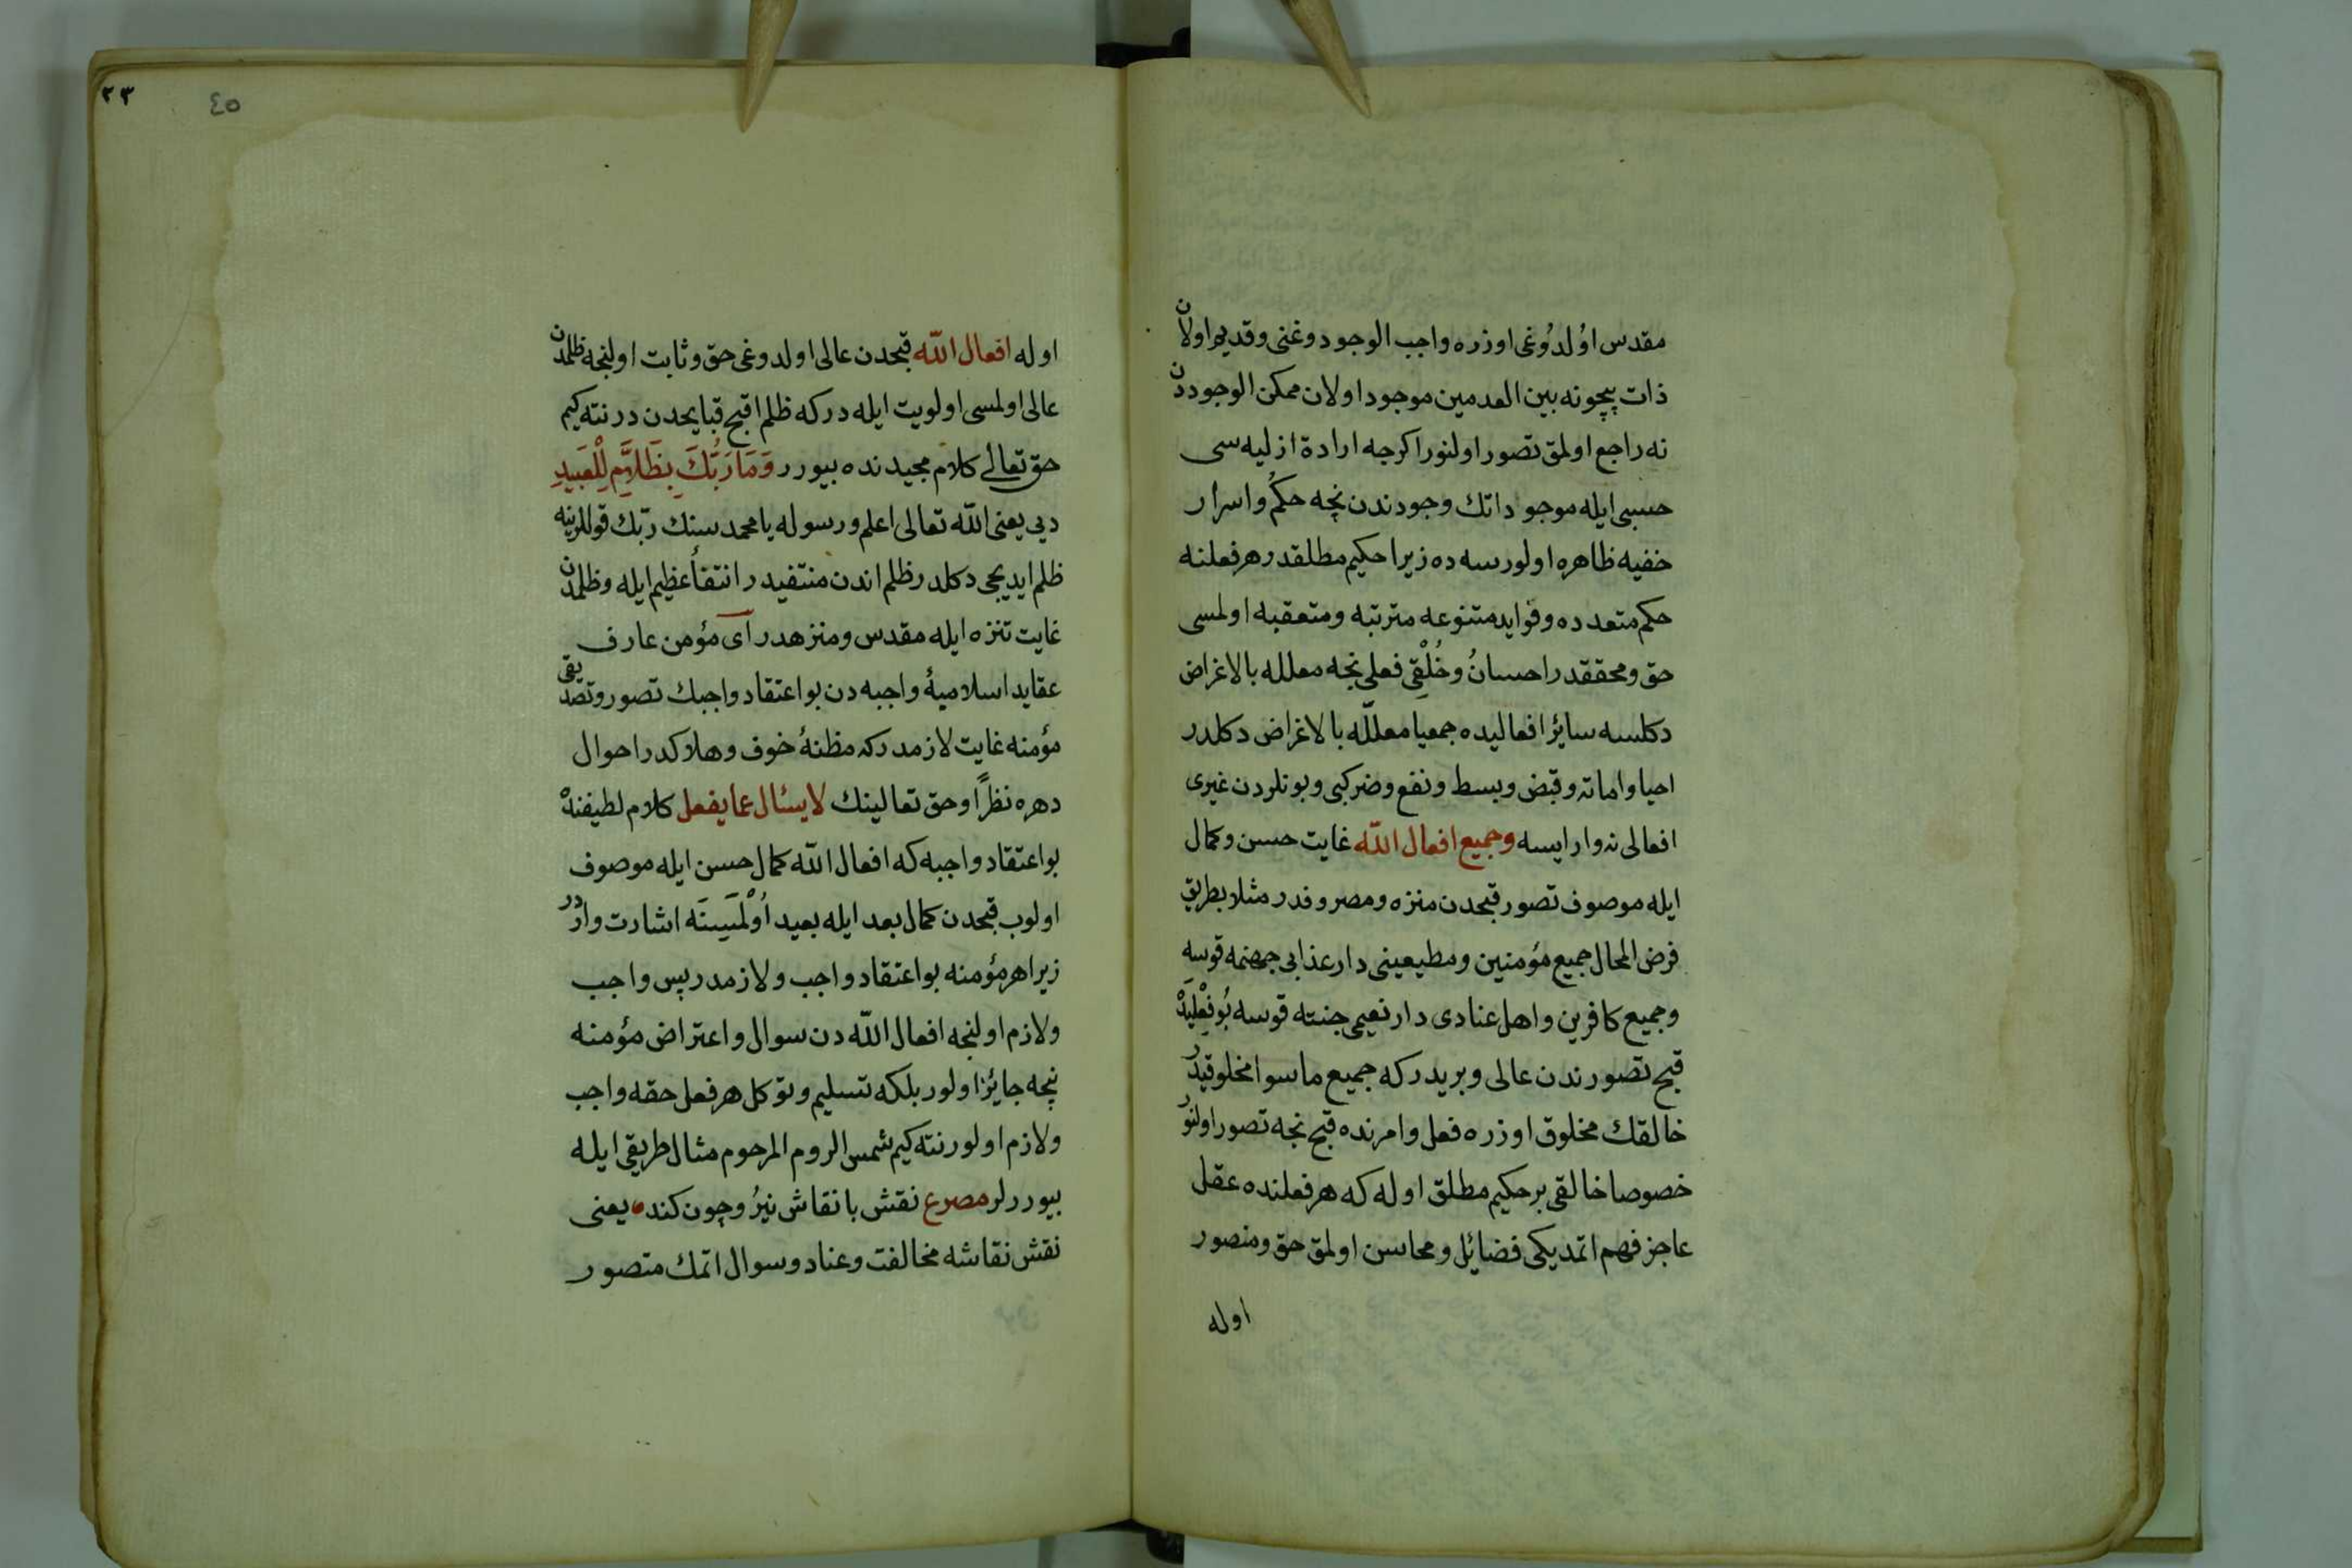 مقدس اوُلدُوغی اوزره واجب الوجود وغنی وقدیم اولان
ذات بیچونه بین العدمین موجود اولان ممکن الوجوددن
نه راجع اولمق تصور اولنور اکرجه ارادۀ ازلیه سی
حسبی ایله موجوداتك وجودندن نچه حکم واسرار
خفیه ظاهره اولورسه ده زیرا حکیم مطلقدر هر فعلنه
حکم متعدده وفواید متنوعه مترتبه ومتعقبه اولمسی
حق ومحققدر احسانُ وخُلْقِی فعلی نجه معلله بالاغراض
دکلسه سایر افعالیده جمعیا معلّله بالاغراض دکلدر
احیا واماته وقبض وبسط ونفع وضر کبی وبونلردن غیری
افعالی نه وار ایسه وجمیع افعال الله غایت حسن وکمال
ایله موصوف تصور قبحدن منزه ومصروفدر مثلا بطریق
فرض المحال جمیع مؤمنین ومطیعینی دار عذابی جهنمه قوسه
وجمیع کافرین واهل عنادی دار نعیمی جنته قوسه بُو فِعْلِیدْه
قبح تصورندن عالی وبریدر که جمیع ماسوا مخلوقیدر
خالقك مخلوق اوزره فعل وامرنده قبح نجه تصور اولنور
خصوصا خالقی بر حکیم مطلق اوله که هر فعلنده عقل
عاجز فهم اتمدیکی فضائل ومحاسن اولمق حق ومتصور
اوله
٢٣
٤٥
اوله افعال الله قبحدن عالی اولدوغی حق وثابت اولنجه ظلمدن
عالی اولمسی اولویت ایله در که ظلم اقبح قبایحدن در نته کیم
حق تعالی کلام مجیدنده بیورر وَمَا رَبُّكَ بِظَلَّامٍ لِلْعَبِيدِ
دیی یعنی الله تعالی اعلم ورسوله یا محمد سنك ربّك قوللرینه
ظلم ایدیجی دکلدر ظلم اندن منتفیدر انتفاء عظیم ایله وظلمدن
غایت تنزه ایله مقدس ومنزهدر آی مؤمن عارف
عقاید اسلامیهٔ واجبه دن بو اعتقاد واجبك تصور وتصدیقی
مؤمنه غایت لازمدر که مظنهٔ خوف وهلاکدر احوال
دهره نظراً وحق تعالینك لایسئال عما یفعل کلام لطیفنده
بو اعتقاد واجبه که افعال الله کمال حسن ایله موصوف
اولوب قبحدن کمال بعد ایله بعید اُوْلْمَسِینَه اشارت واردر
زیرا هر مؤمنه بو اعتقاد واجب ولازمدر پس واجب
ولازم اولنجه افعال الله دن سوال واعتراض مؤمنه
نچه جائز اولور بلکه تسلیم وتوکل هر فعل حقه واجب
ولازم اولور نته کیم شمس الروم المرحوم مثال طریقی ایله
بیوررلر مصرع نقش با نقاش نیرُو چون کند یعنی
نقش نقاشه مخالفت وعناد وسوال اتمك متصور